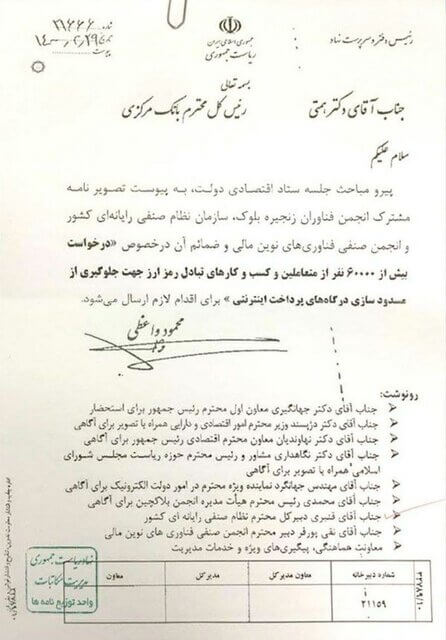 شماره ۲۱۶۶۶
تاریخ ۱۴۰۰/۲/۲۹
پیوست
جمهوری اسلامی ایران
ریاست جمهوری
رئیس دفتر و سرپرست نهاد
بسمه تعالی
جناب آقای دکتر همتی
رئیس کل محترم بانک مرکزی
سلام علیکم
پیرو مباحث جلسه ستاد اقتصادی دولت، به پیوست تصویر نامه
مشترک انجمن فناوران زنجیره بلوک، سازمان نظام صنفی رایانه‌ای کشور
و انجمن صنفی فناوری‌های نوین مالی و ضمائم آن درخصوص «درخواست
بیش از ۶۰۰۰۰ نفر از متعاملین و کسب و کارهای تبادل رمز ارز جهت جلوگیری از
مسدود سازی درگاه‌های پرداخت اینترنتی» برای اقدام لازم ارسال می‌شود.
محمود واعظی
رونوشت:
جناب آقای دکتر جهانگیری معاون اول محترم رئیس جمهور برای استحضار
جناب آقای دکتر دژپسند وزیر محترم امور اقتصادی و دارایی همراه با تصویر برای آگاهی
جناب آقای دکتر نهاوندیان معاون محترم اقتصادی رئیس جمهور برای آگاهی
جناب آقای دکتر نگاهداری مشاور و رئیس محترم حوزه ریاست مجلس شورای
اسلامی همراه با تصویر برای آگاهی
جناب آقای مهندس جهانگرد نماینده ویژه محترم در امور دولت الکترونیک برای آگاهی
جناب آقای محمدی رئیس محترم هیأت مدیره انجمن بلاکچین برای آگاهی
جناب آقای قنبری دبیرکل محترم نظام صنفی رایانه ای کشور
جناب آقای نقی پورفر دبیر محترم انجمن صنفی فناوری های نوین مالی
معاونت هماهنگی، پیگیری‌های ویژه و خدمات مدیریت
شماره دبیرخانه
معاون مدیرکل
مدیرکل
معاون
۲۱۱۵۹
نهاد ریاست جمهوری
مدیریت مکاتبات
واحد توزیع نامه ها